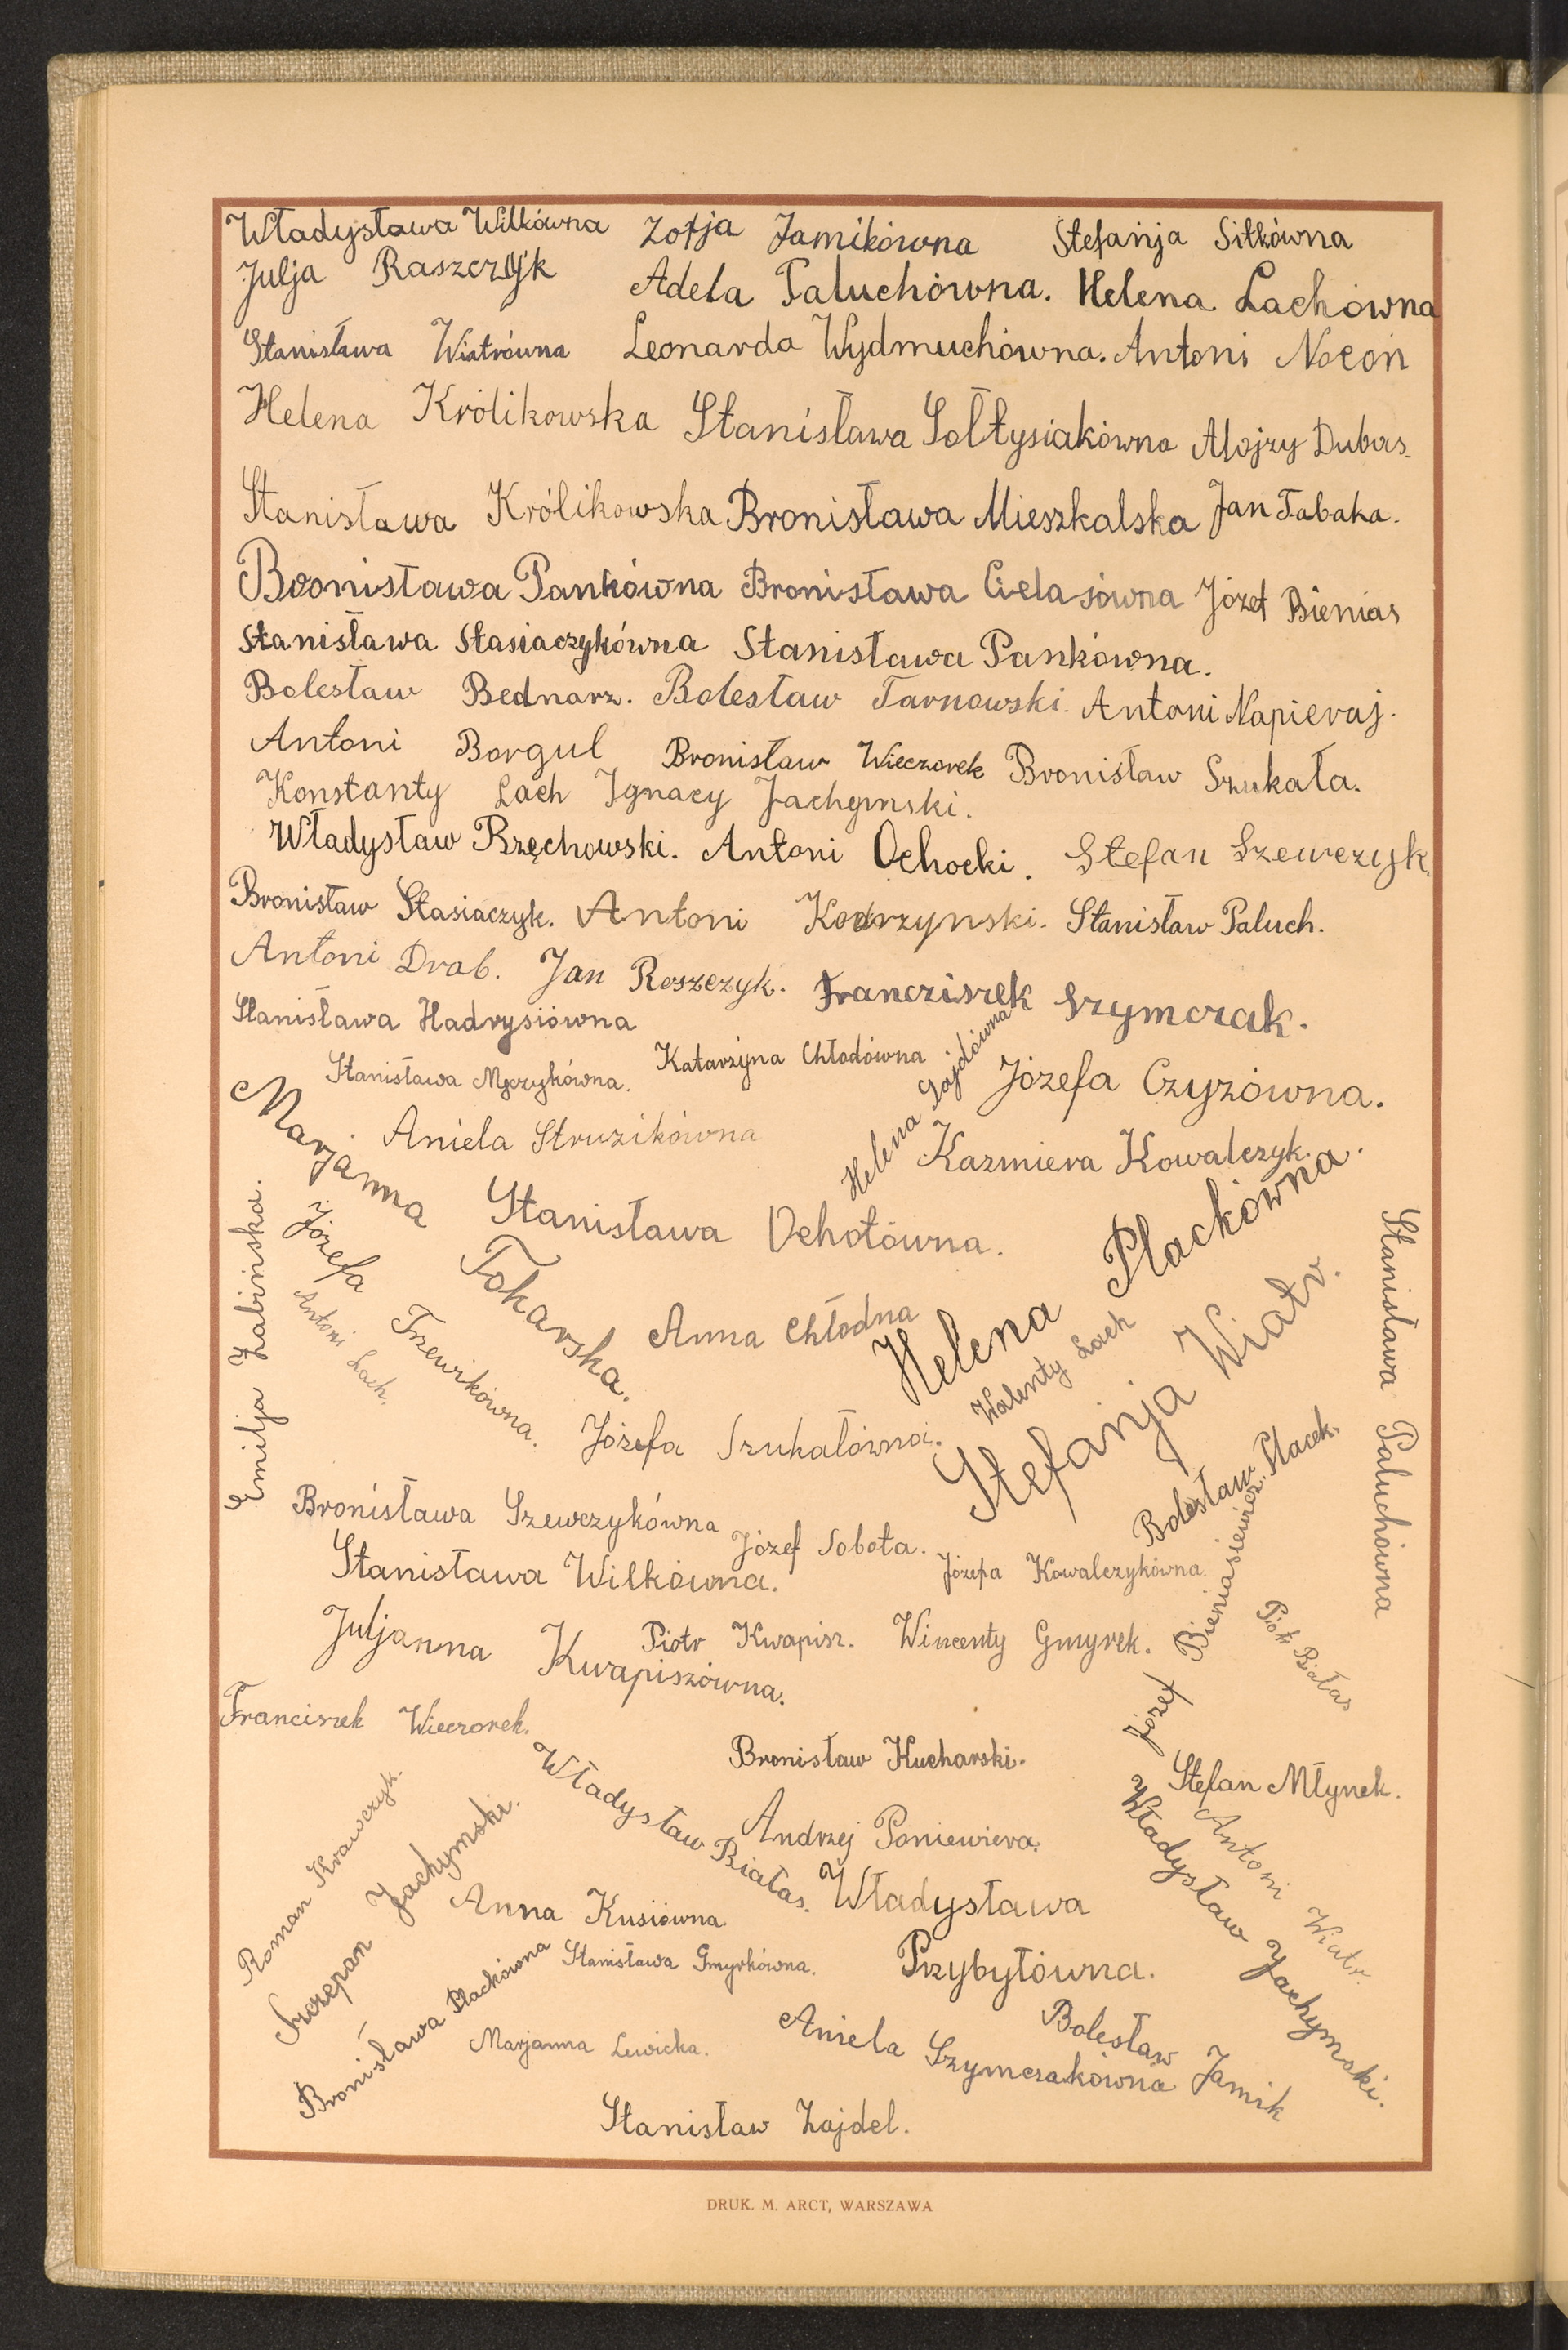 Władysława Wilkówna Zofja Jamikówna Stefanja Sitkówna
Julja Raszczyk Adela Paluchówna. Helena Lachówna
Stanisława Wiatrówna Leonarda Wydmuchówna. Antoni Nocoń
Helena Królikowska Stanisława Sołtysiakówna Alojzy Dubas.
Stanisława Królikowska Bronisława Mieszkalska Jan Tabaka.
Bronisława Pankówna Bronisława Cielasówna Józef Bienias
Stanisława Stasiaczykówna Stanisława Pankówna.
Bolesław Bednarz. Bolesław Tarnowski. Antoni Napieraj.
Antoni Borgul Bronisław Wieczorek Bronisław Szukała.
Konstanty Lach Ignacy Jachymski.
Władysław Rzęchowski. Antoni Ochocki. Stefan Szewczyk.
Bronisław Stasiaczyk. Antoni Kodrzynski. Stanisław Paluch.
Antoni Drab. Jan Roszczyk. Franciszek Szymczak.
Stanisława Hadrysiówna
Stanisława Męczykówna. Katarzyna Chłodówna
Helena Gajdówna
Józefa Czyzówna.
Marjanna Tokarska.
Aniela Struzikówna
Kazmiera Kowalczyk.
Stanisława Ochotówna.
Helena Plackówna.
Emilja Żabińska.
Józefa Trzewikówna.
Antoni Lach.
Anna Chłodna
Walenty Lach
Stefanja Wiatr.
Stanisława Paluchówna
Józefa Szukałówna.
Bolesław Placek.
Bronisława Szewczykówna
Józef Sobota.
Stanisława Wilkówna.
Józefa Kowalczykówna.
Józef Bieniasiewicz.
Piotr Białas
Juljanna Kwapiszówna.
Piotr Kwapisz. Wincenty Gmyrek.
Franciszek Wieczorek.
Władysław Białas.
Bronisław Kucharski.
Stefan Młynek.
Roman Krawczyk.
Szczepan Jachymski.
Andrzej Poniewiera.
Antoni Wiatr.
Władysław Jachymski.
Anna Kusiówna
Władysława Przybyłówna.
Bronisława Plackówna
Stanisława Gmyrkówna.
Marjanna Lewicka.
Aniela Szymczakówna
Bolesław Jamik
Stanisław Zajdel.
DRUK. M. ARCT, WARSZAWA